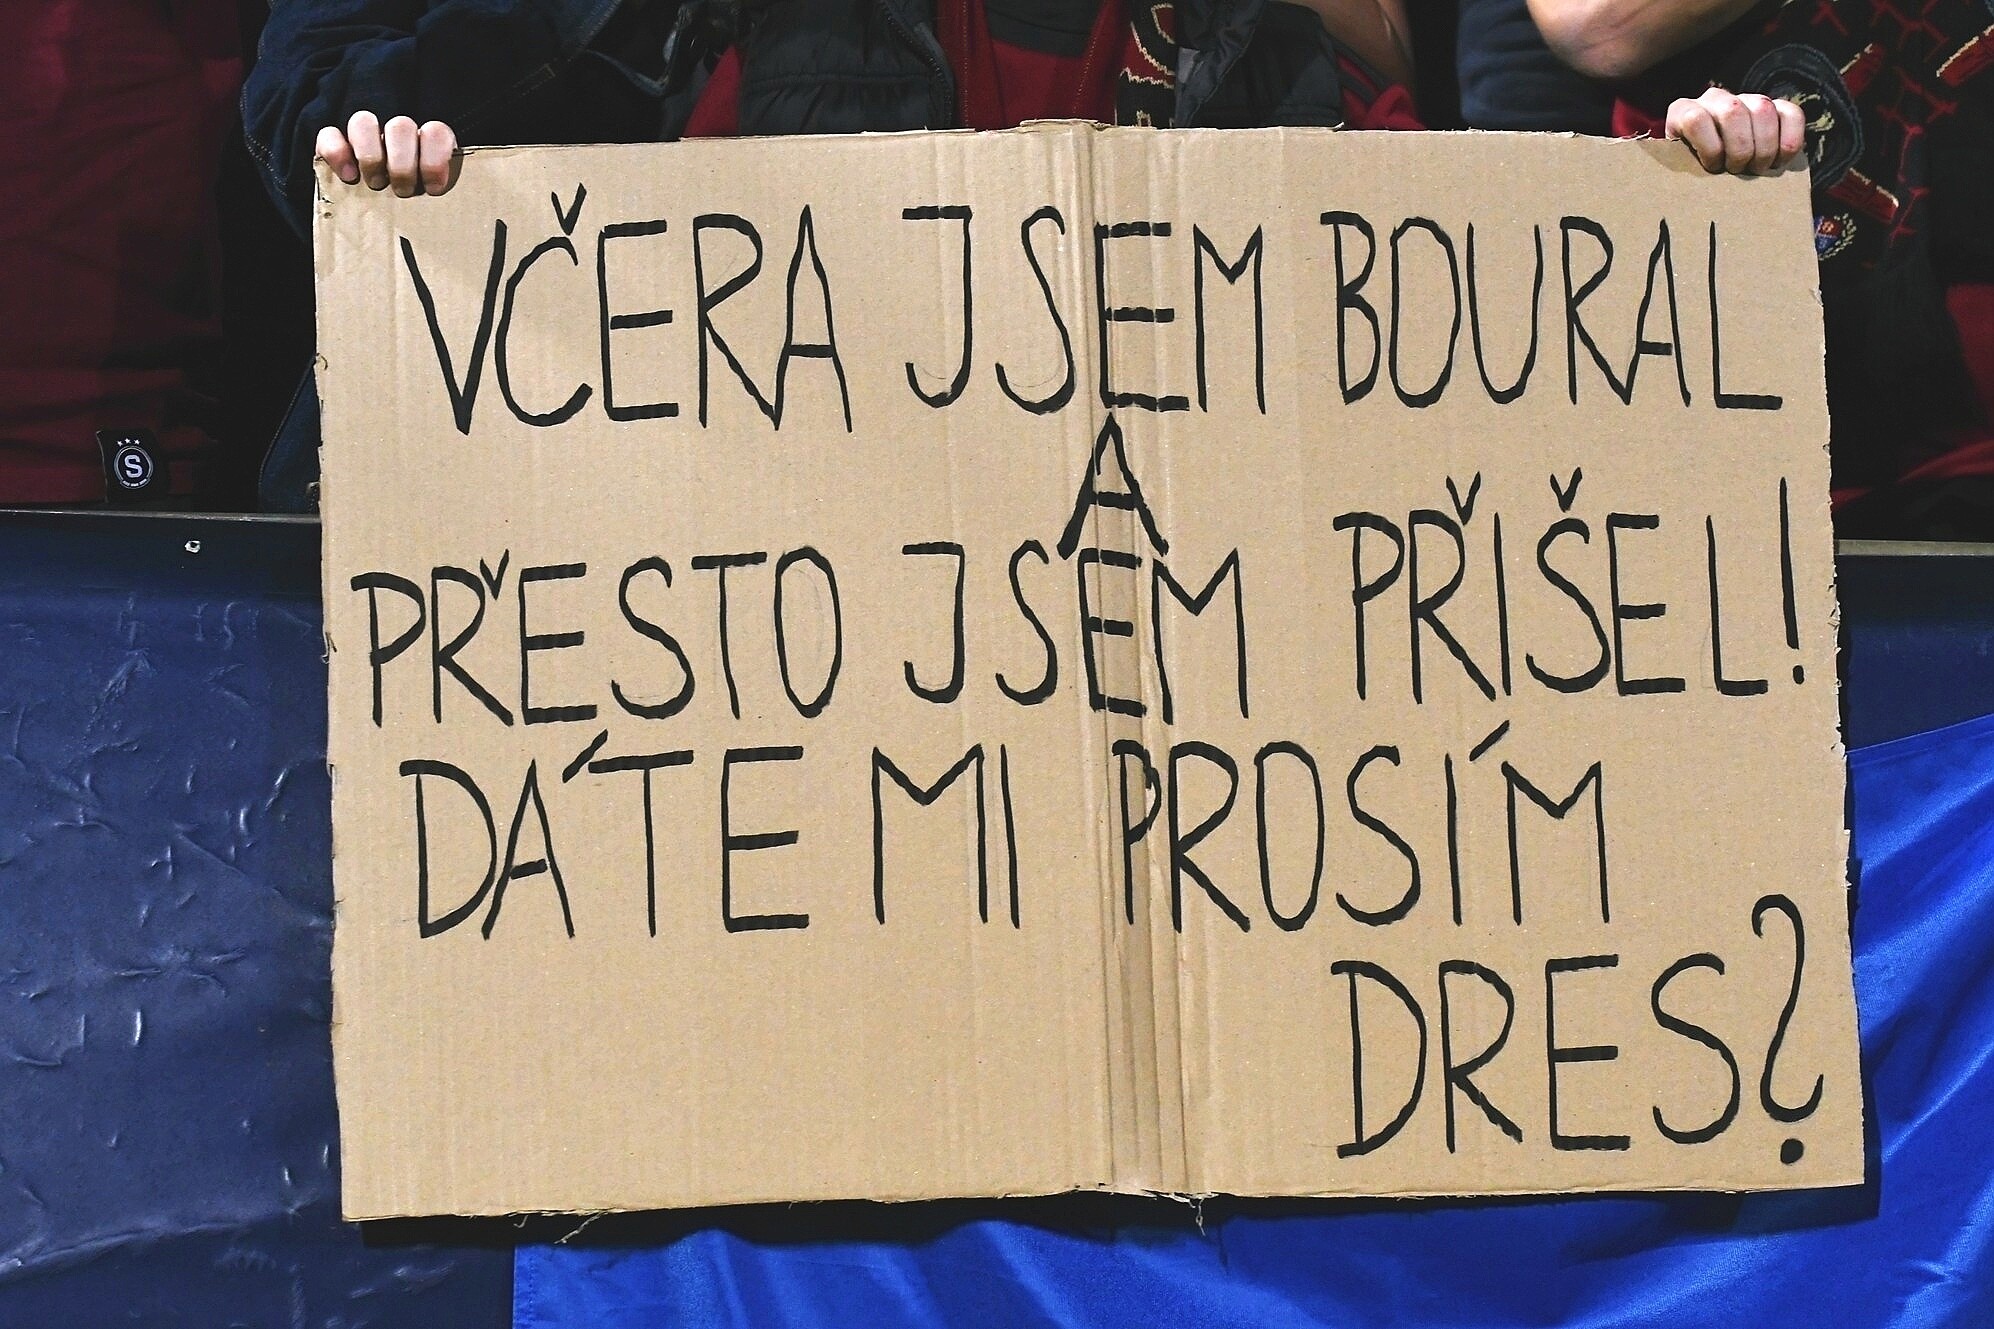 VČERA JSEM BOURAL
A
PŘESTO JSEM PŘIŠEL!
DÁTE MI PROSÍM
DRES?
S